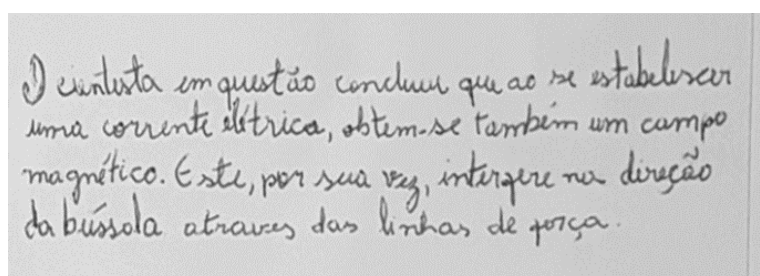 O cientista em questão concluiu que ao se estabelescer
uma corrente elétrica, obtem-se também um campo
magnético. Este, por sua vez, interfere na direção
da bússola atraves das linhas de força.